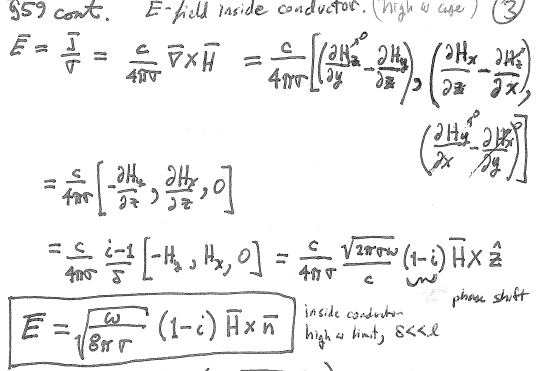 §59 cont. E-field inside conductor. (high ω case) ③
E̅ = J̅/σ = c/4πσ ∇̅ × H̅ = c/4πσ [(∂H_z/∂y →0 - ∂H_y/∂z), (∂H_x/∂z - ∂H_z/∂x →0),
(∂H_y/∂x →0 - ∂H_x/∂y →0)]
= c/4πσ [-∂H_y/∂z, ∂H_x/∂z, 0]
= c/4πσ (i-1)/δ [-H_y, H_x, 0] = c/4πσ √(2πσω)/c (1-i) H̅ × ẑ
phase shift
E̅ = √(ω/8πσ) (1-i) H̅ × n̅
inside conductor
high ω limit, δ<<l